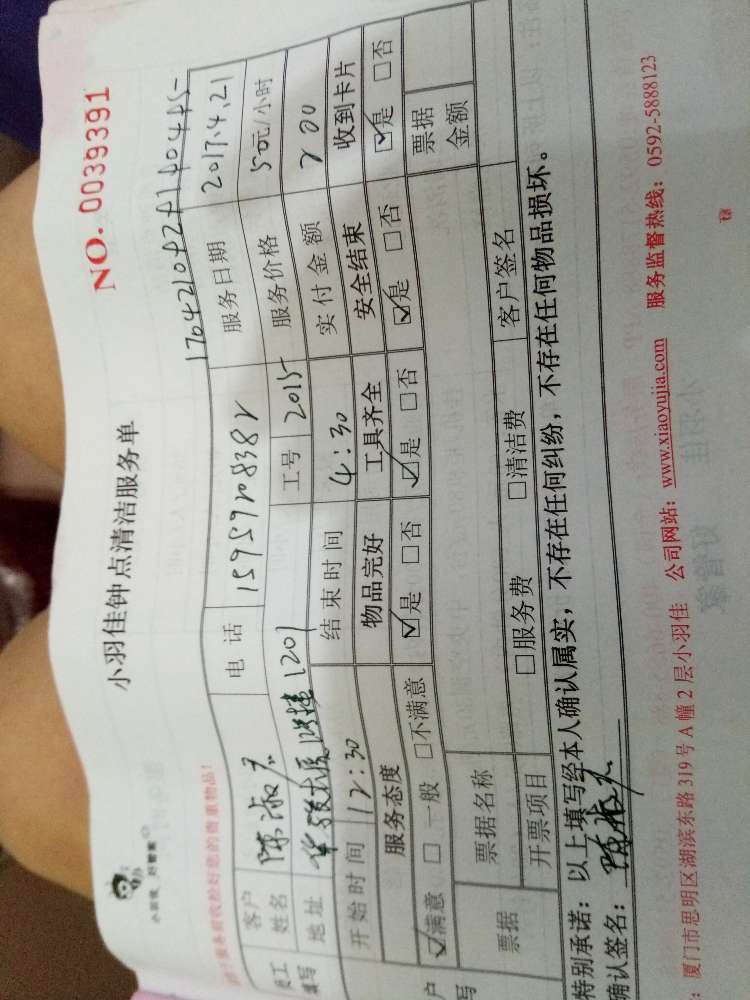 小羽佳 好管家
小羽佳钟点清洁服务单
NO. 0039391
客户姓名
电话 15959208382
服务日期 2017.4.21
填写 地址 1201
工号 2015
服务价格 50元/小时
开始时间 12:30 结束时间 4:30 实付金额 200
服务态度 物品完好 工具齐全 安全结束 收到卡片
☑满意 □一般 □不满意 ☑是 □否 ☑是 □否 ☑是 □否 ☑是 □否
票据 票据名称 票据金额
开票项目 □服务费 □清洁费 客户签名
特别承诺：以上填写经本人确认属实，不存在任何纠纷，不存在任何物品损坏。
确认签名：
：厦门市思明区湖滨东路319号A幢2层小羽佳 公司网站：www.xiaoyujia.com 服务监督热线：0592-5888123